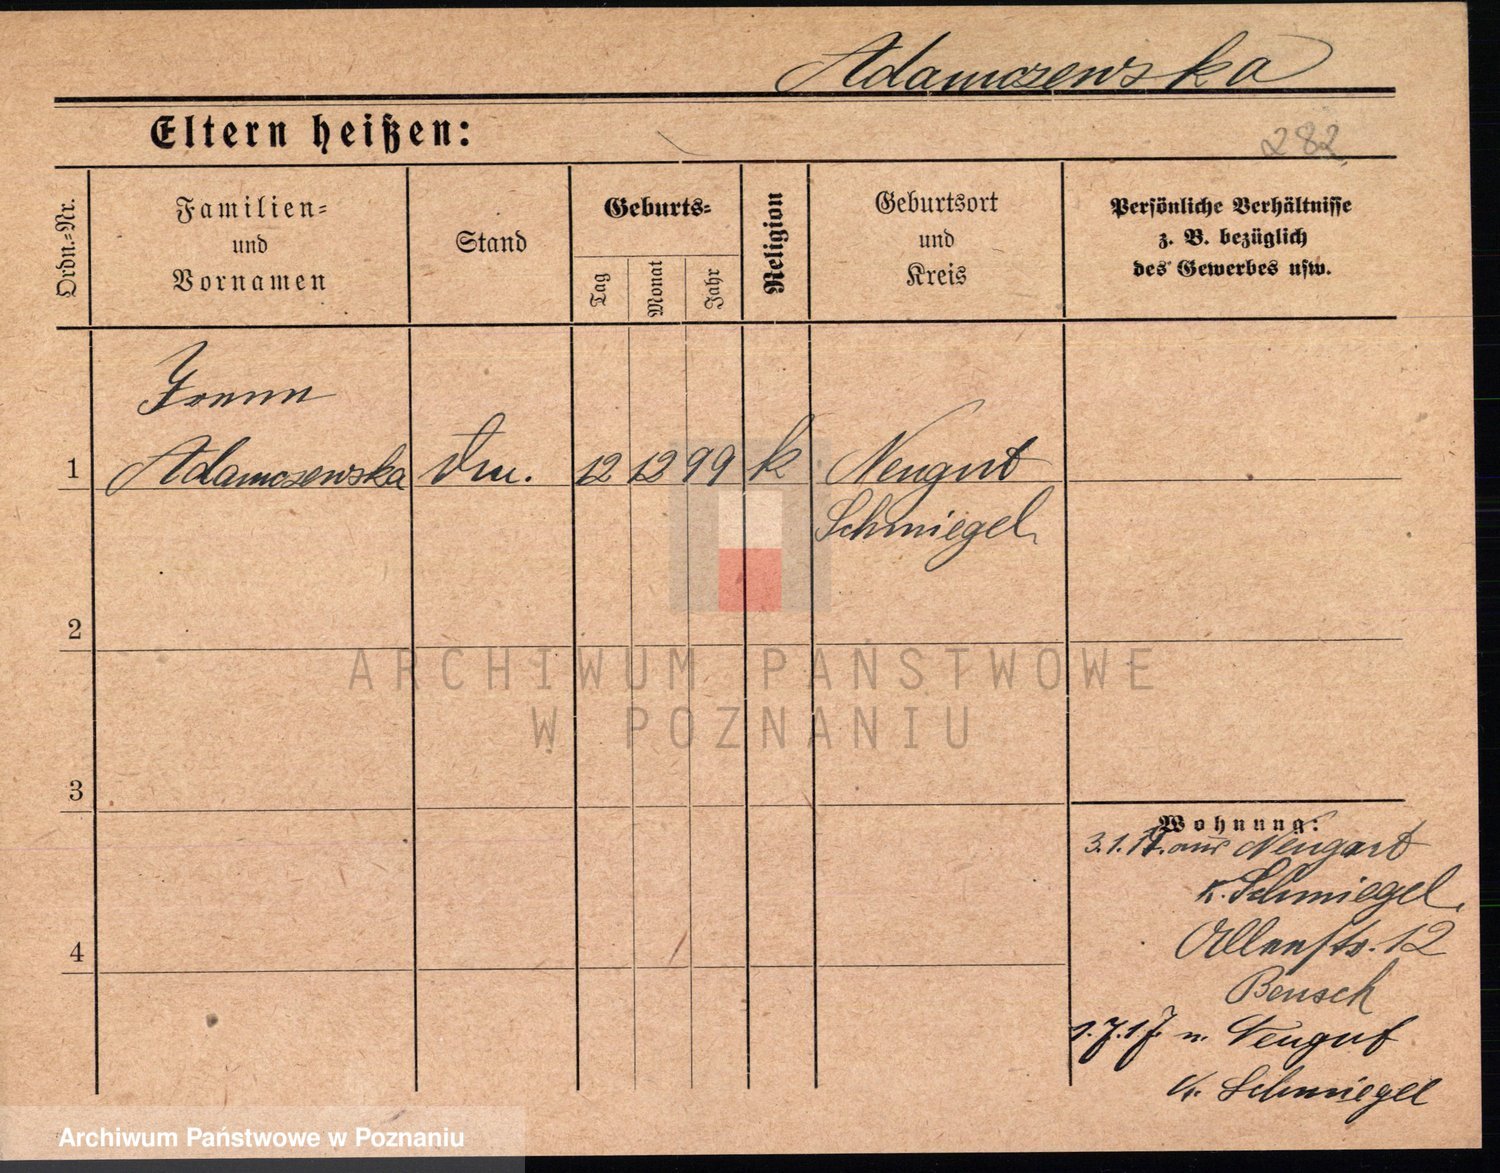 Adamczewska
Eltern heißen:
282
Ordn.=Nr.
Familien=
und
Vornamen
Stand
Geburts=
Tag
Monat
Jahr
Religion
Geburtsort
und
Kreis
Persönliche Verhältnisse
z. B. bezüglich
des Gewerbes usw.
1
Adamczewska
12 12 99 k Neugut
Schmiegel
2
ARCHIWUM PAŃSTWOWE
W POZNANIU
3
Wohnung:
3.1.17. aus Neugut
K. Schmiegel
12
1.7.17. n. Neugut
Kr. Schmiegel
4
Archiwum Państwowe w Poznaniu